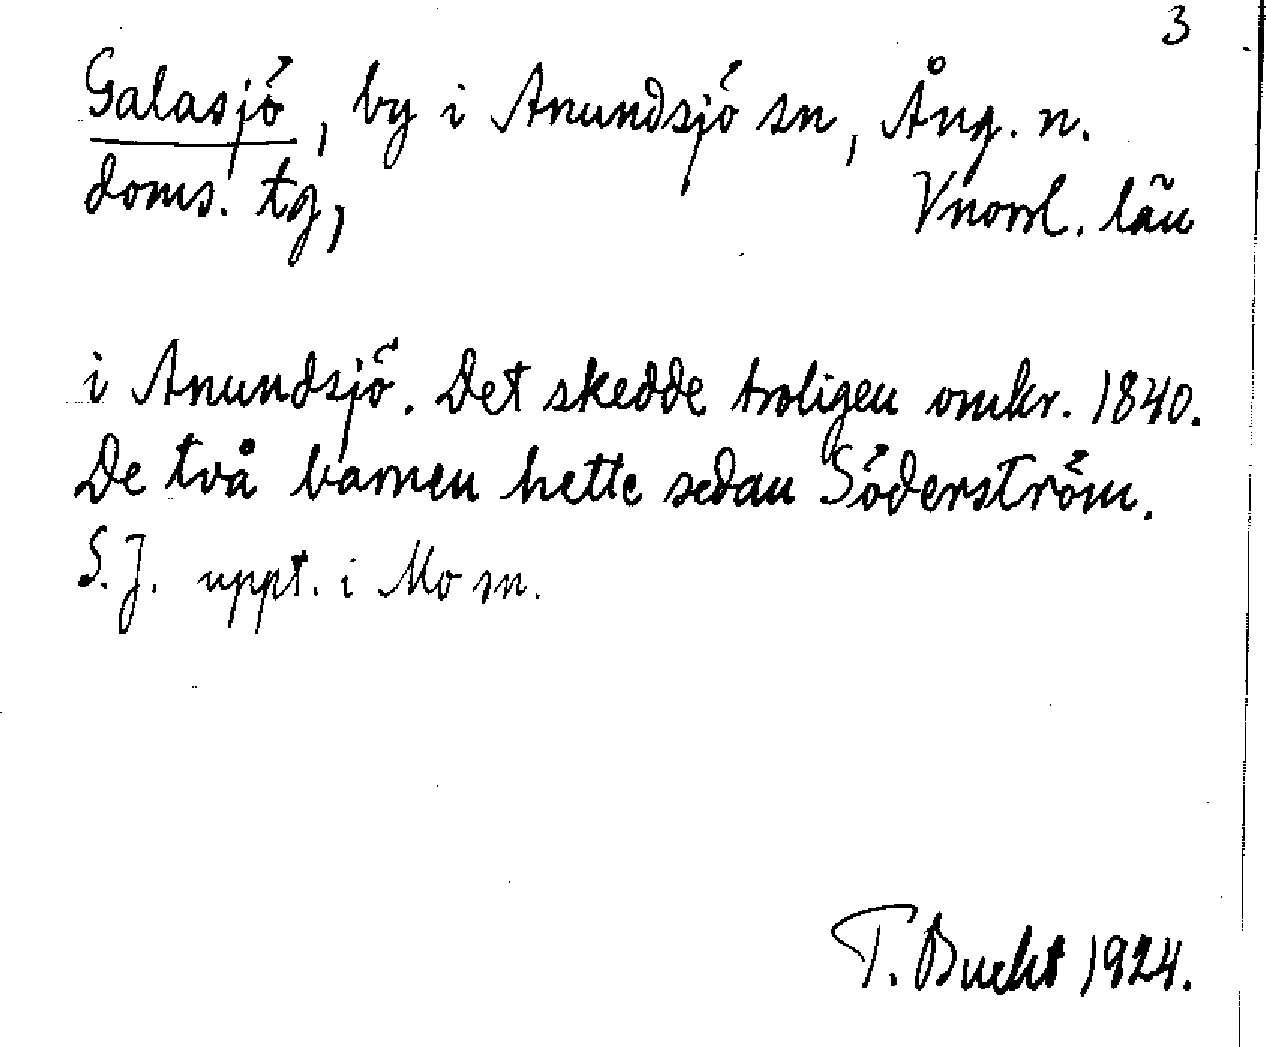 3
Galasjö, by i Anundsjö sn, Ång. n.
doms. tg, Vnorrl. län
i Anundsjö. Det skedde troligen omkr. 1840.
De två barnen hette sedan Söderström.
S.J. uppt. i Mo sn.
T. Bucht 1924.